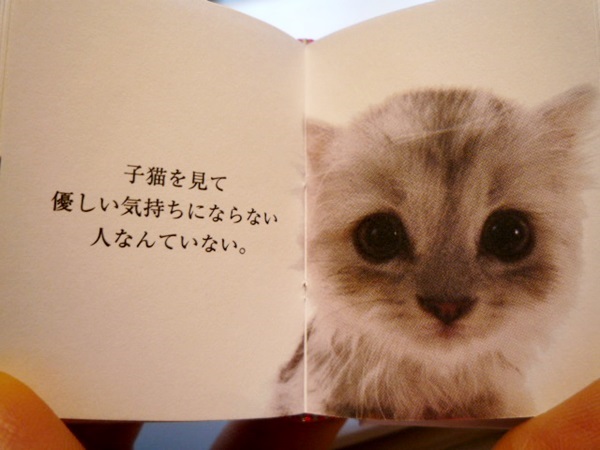 子猫を見て
優しい気持ちにならない
人なんていない。